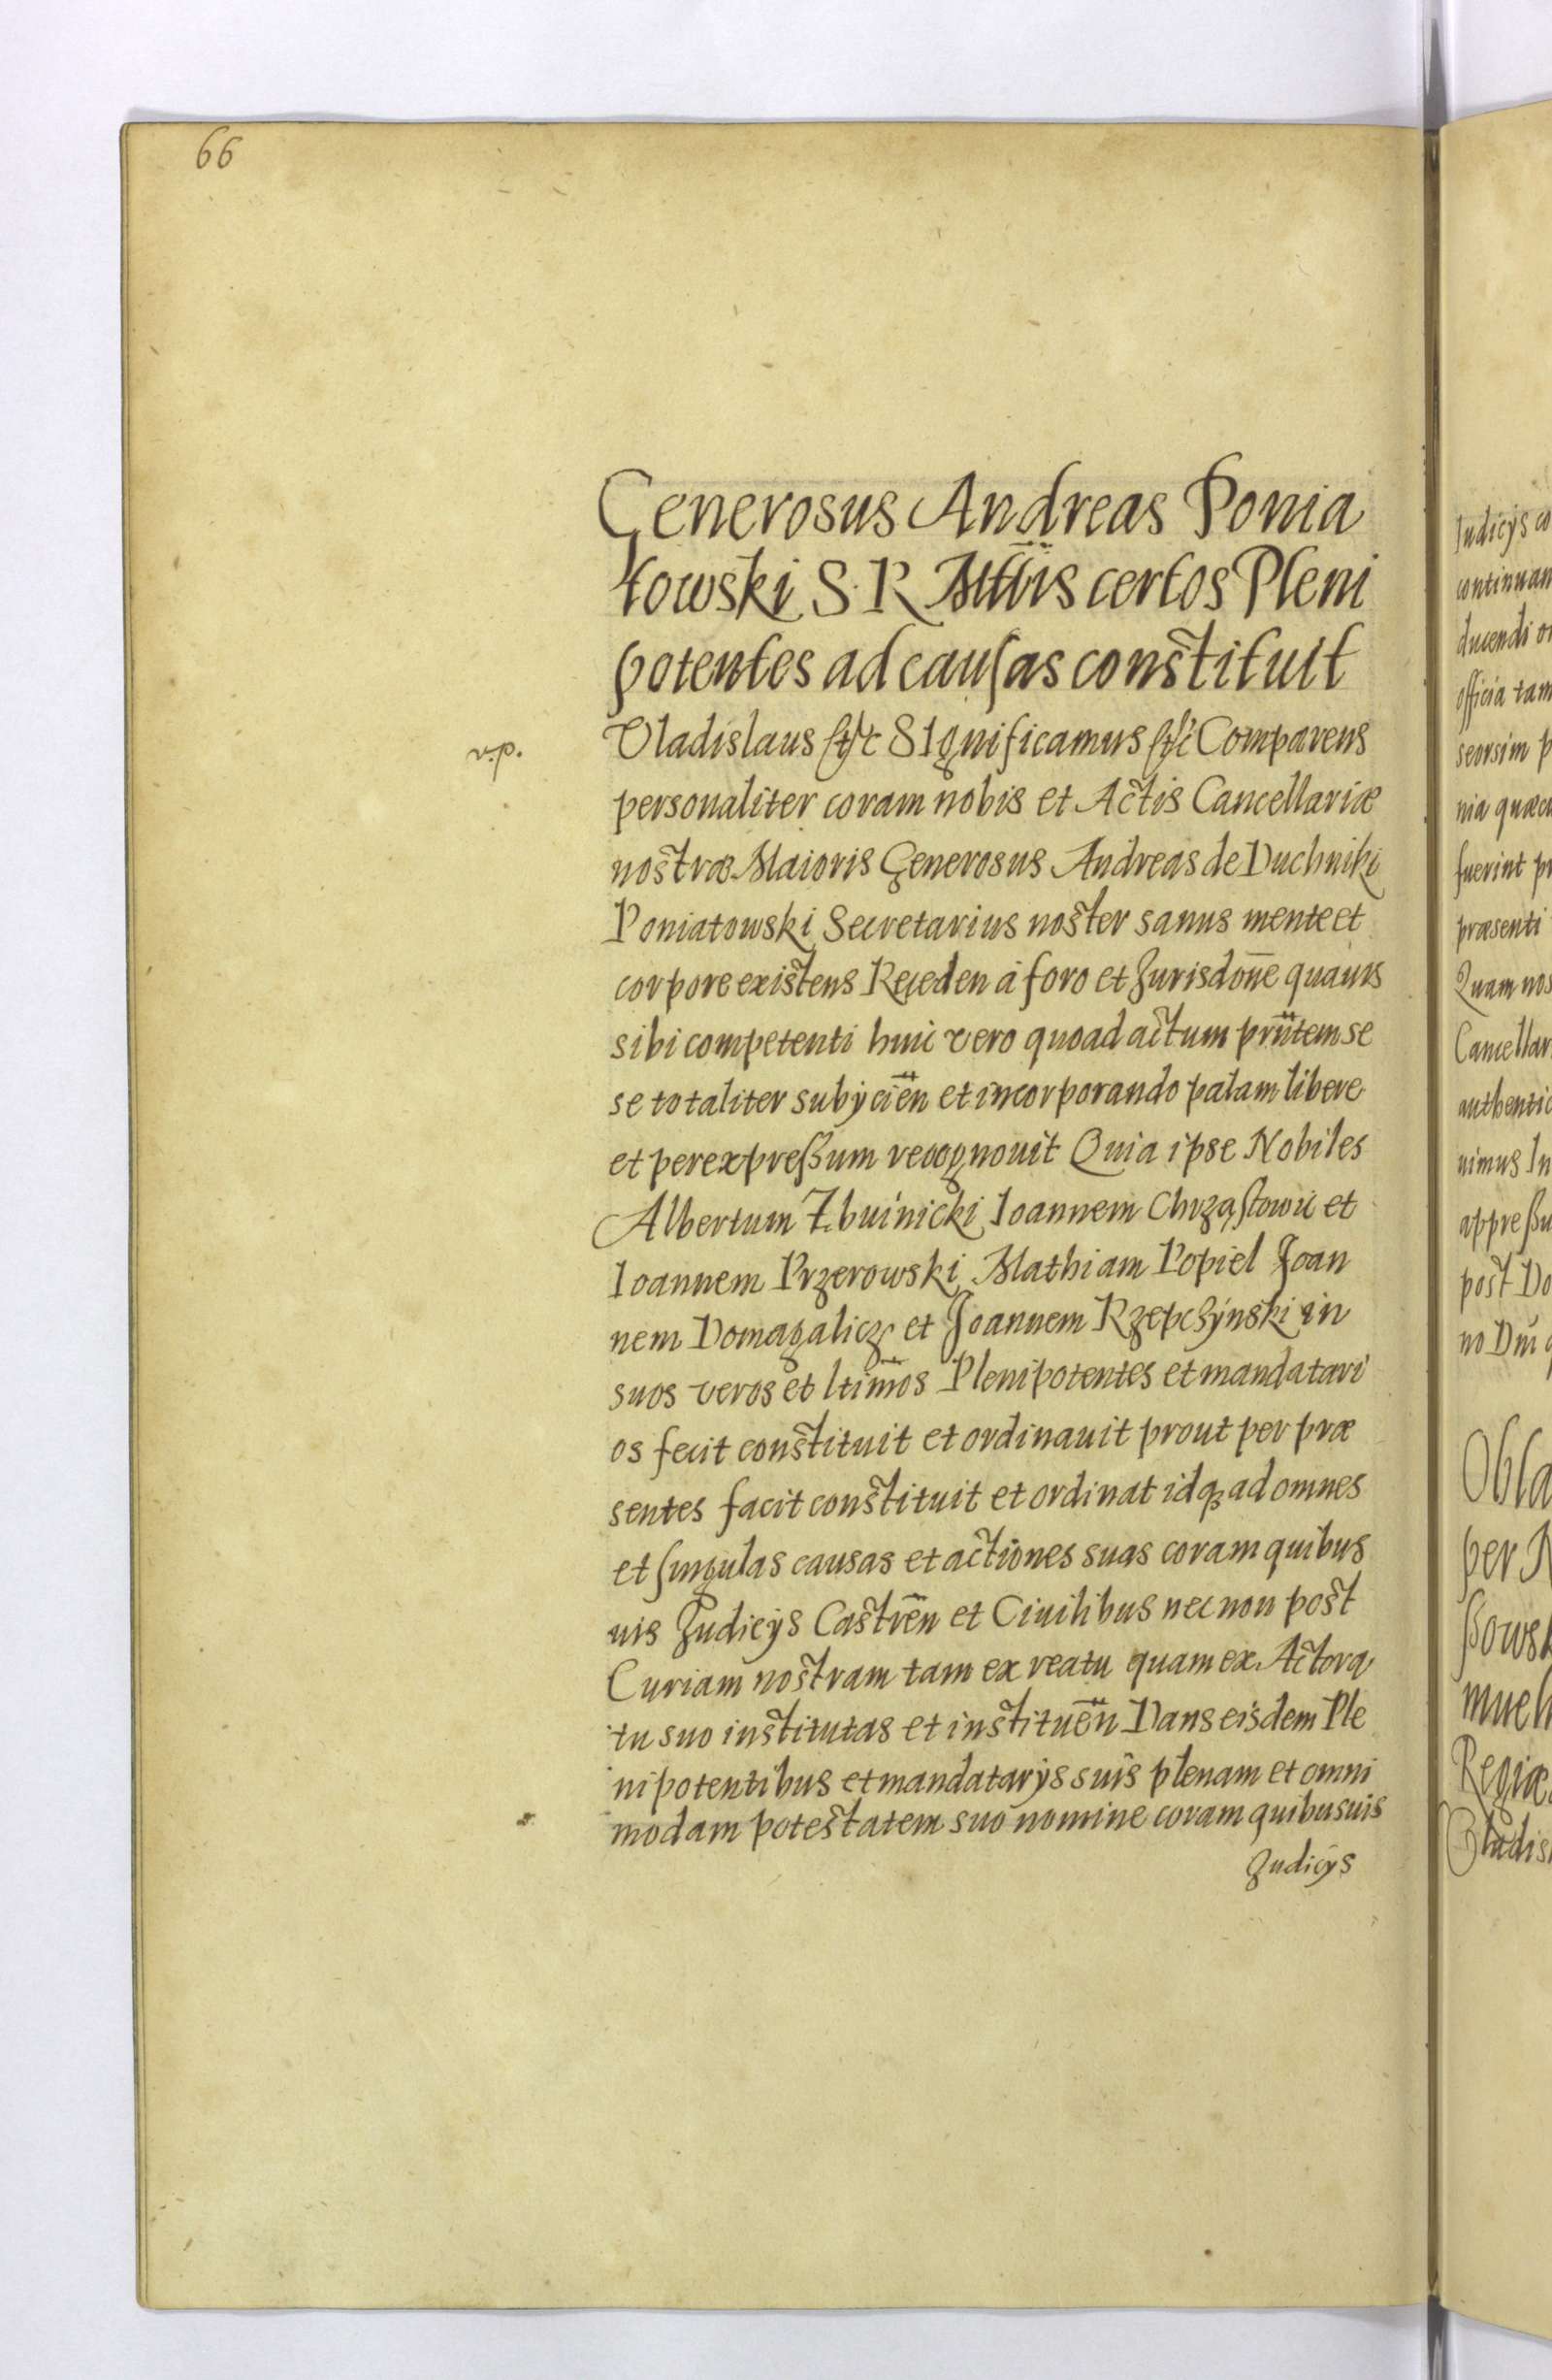 66
Generosus Andreas Ponia
towski S. R. Mttis certos Pleni
potentes ad causas constituit
Vladislaus Significamus Comparens
personaliter coram nobis et Actis Cancellariæ
nostræ Maioris Generosus Andreas de Duchniki
Poniatowski Secretarius noster sanus mente et
corpore existens Receden à foro et Jurisdone quauis
sibi competenti huic vero quoad actum prntem se
se totaliter subÿcien et incorporando palam libere
et per expreßum recognouit Quia ipse Nobiles
Albertum Zbuinicki Ioannem Chrząstowic et
Ioannem Przerowski Mathiam Popiel Joan
nem Domagalicz et Joannem Rzepchÿnski in
suos veros et ltimos Plenipotentes et mandatari
os fecit constituit et ordinauit prout per præ
sentes facit constituit et ordinat idq ad omnes
et singulas causas et actiones suas coram quibus
uis Judicÿs Castren et Ciuilibus nec non post
Curiam nostram tam ex reatu quam ex Actora
tu suo institutas et instituen Dans eisdem Ple
nipotentibus et mandatarÿs suis plenam et omni
modam potestatem suo nomine coram quibusuis
Judicÿs
Iudicÿs co
continuan
ducendi
officia tam
seorsim p
nia quæcu
fuerint pr
præsenti
Quam nos
Cancellar
authentic
uimus In
appreßu
post Do
no Dni
Obla
per N
ßowsk
muel
Regiæ
Vladis